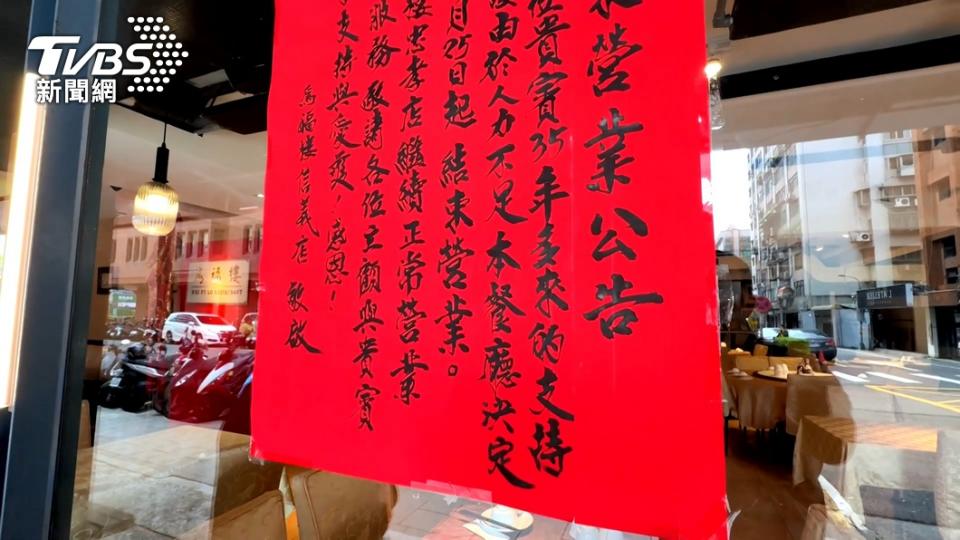 TVBS
新聞網
束營業公告
位貴賓35年多來的支持
由於人力不足本餐廳決定
月25日起 結束營業。
樓忠孝店繼續正常營業
服務 敬請各位主顧與貴賓
支持與愛護！感恩！
為福樓信義店 敬啟
福樓